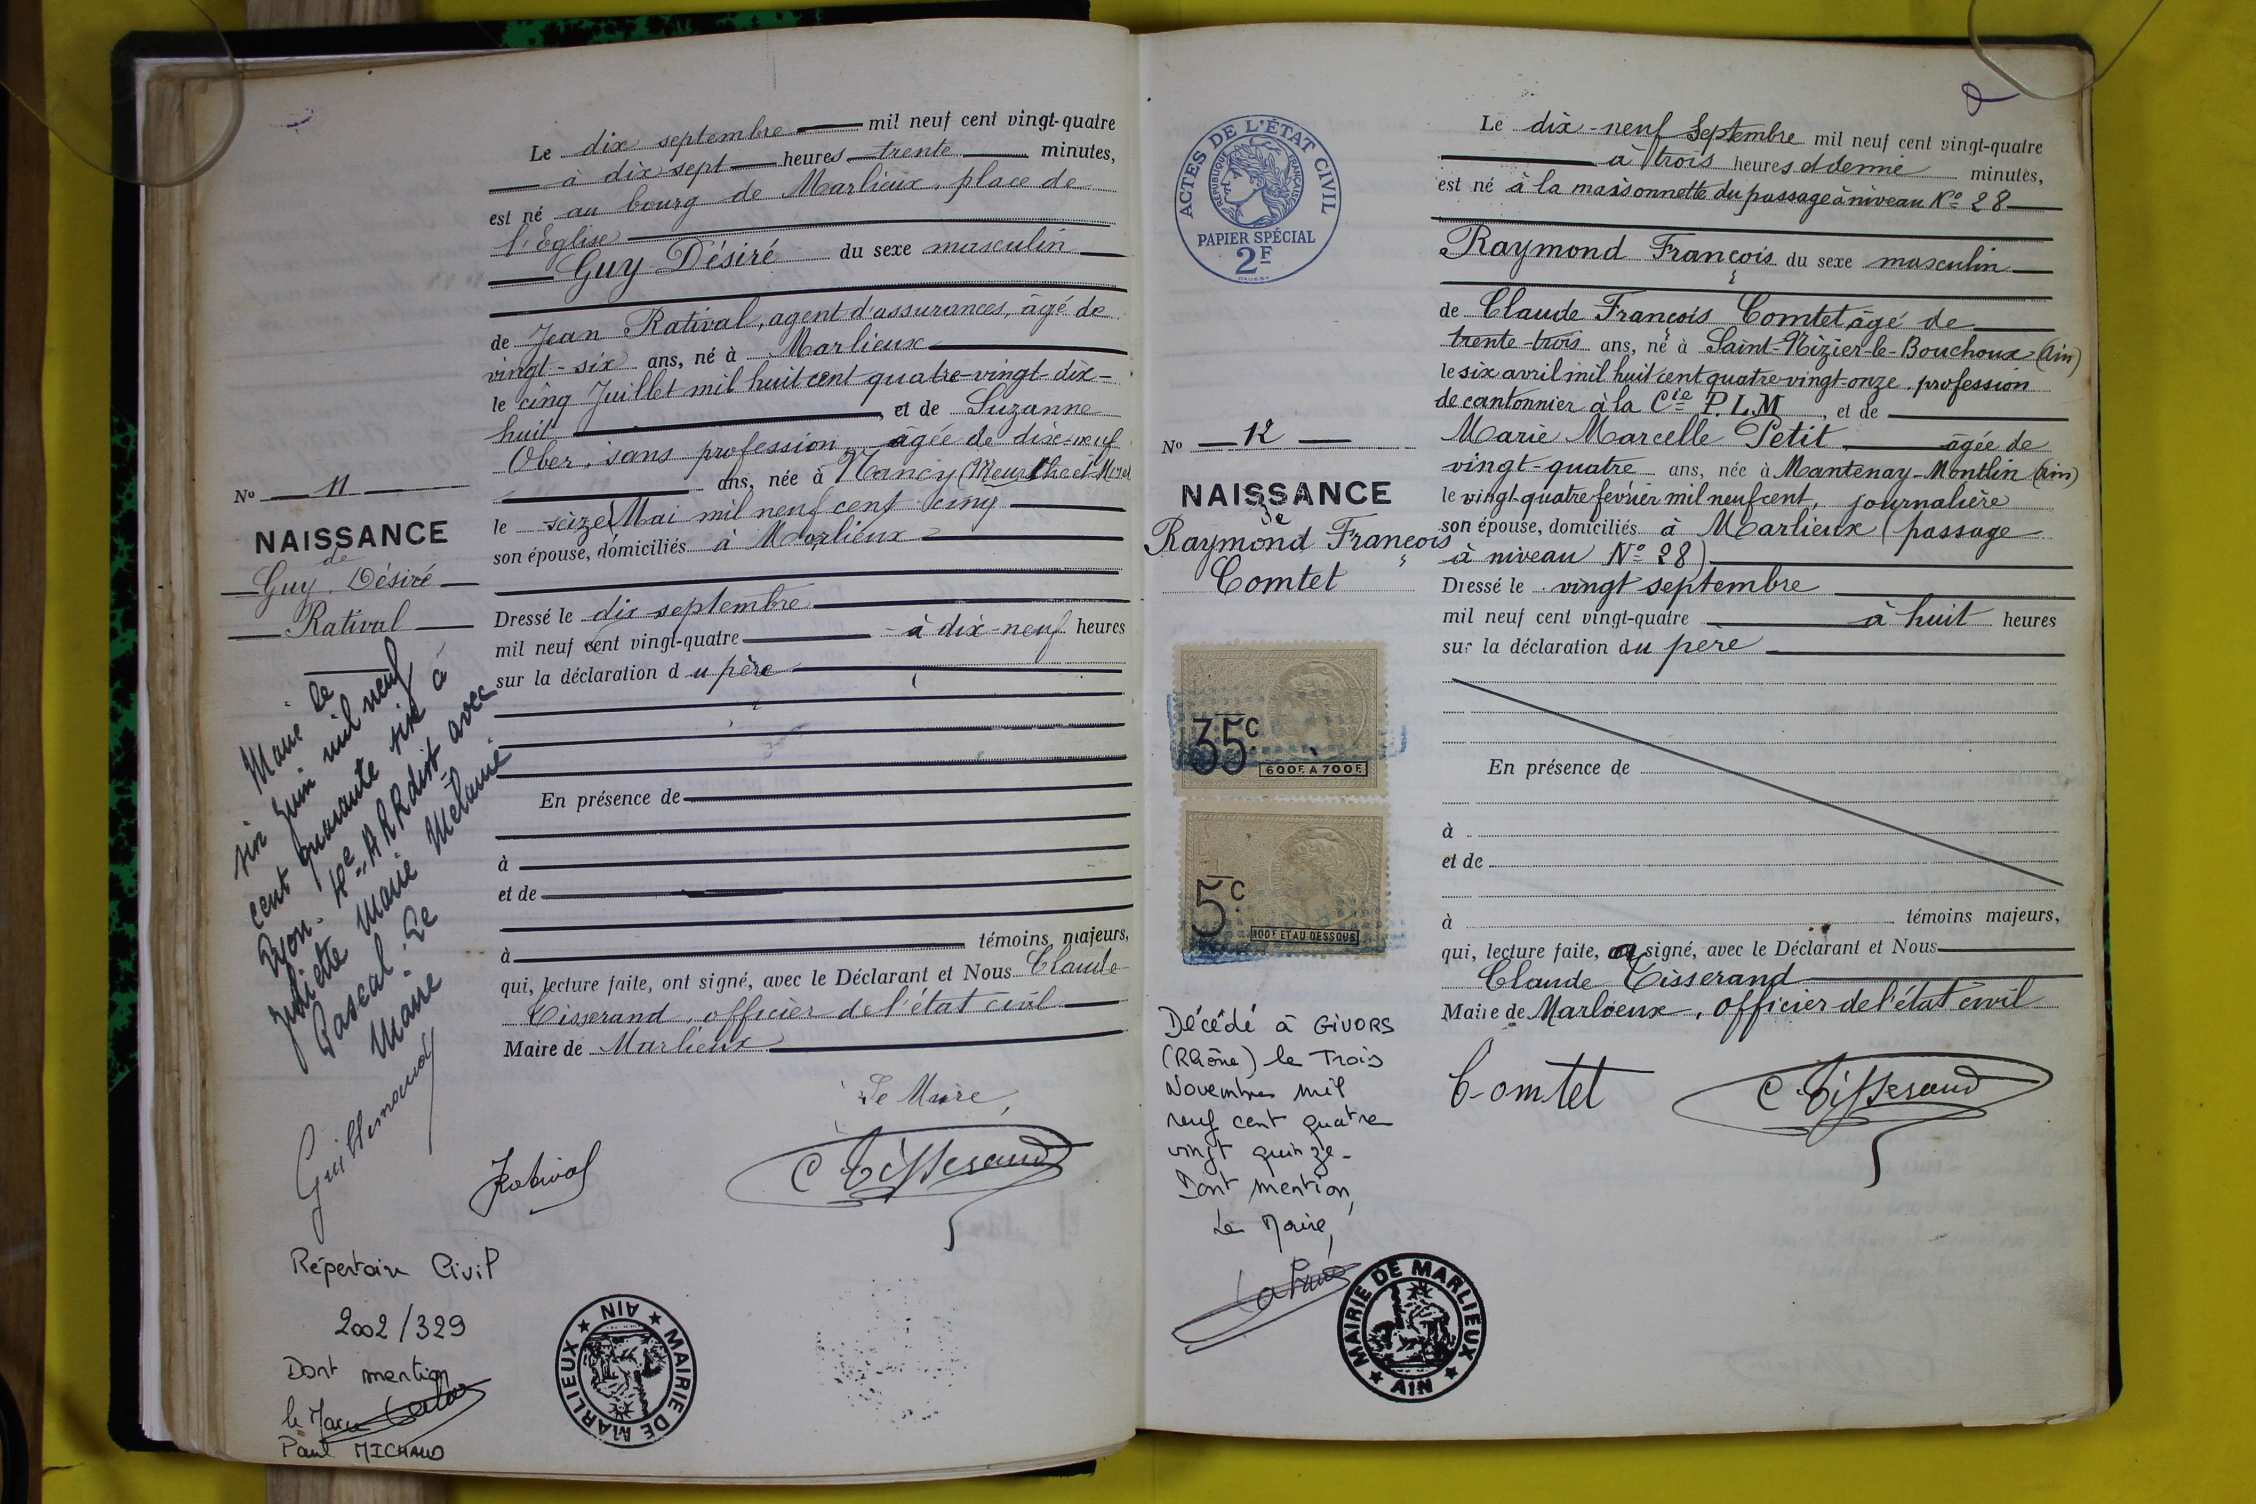 Le dix septembre mil neuf cent vingt-quatre
à dix-sept heures trente minutes,
est né au bourg de Marlieux, place de
l'Eglise
Guy Désiré du sexe masculin
de Jean Ratival, agent d'assurances, âgé de
vingt-six ans, né à Marlieux
le cinq Juillet mil huit cent quatre-vingt-dix-
huit, et de Suzanne
Ober, sans profession, âgée de dix-neuf
ans, née à Nancy (Meurthe et Mlle)
le seize Mai mil neuf cent cinq
son épouse, domiciliés à Marlieux
Dressé le dix septembre
mil neuf cent vingt-quatre à dix-neuf heures
sur la déclaration du père
En présence de
à
et de
à témoins majeurs,
qui, lecture faite, ont signé, avec le Déclarant et Nous Claude
Tisserand, officier de l'état civil
Maire de Marlieux
Le Maire,
JRatival
C Tisserand
No 11
NAISSANCE
de
Guy Désiré
Ratival
Marié le
six Juin mil neuf
cent quarante six à
Lyon. 4e ARRdist avec
Juliette Marie Mélanie
Pascal. Le
Maire
Guillemaud
Répertoire Civil
2002/329
Dont mention
le Maire
Paul MICHAUD
MAIRIE DE MARLIEUX
AIN
ACTES DE L'ÉTAT CIVIL
RÉPUBLIQUE FRANÇAISE
PAPIER SPÉCIAL
2F
No 12
NAISSANCE
de
Raymond François
Comtet
35c
600F A 700F
5c
100F ET AU DESSOUS
Décédé à GIVORS
(Rhône) le Trois
Novembre mil
neuf cent quatre
vingt quinze-
Dont mention,
Le Maire,
MAIRIE DE MARLIEUX
AIN
Le dix-neuf Septembre mil neuf cent vingt-quatre
à trois heures et demie minutes,
est né à la maisonnette du passage à niveau No 28
Raymond François du sexe masculin
de Claude François Comtet, âgé de
trente-trois ans, né à Saint-Nizier-le-Bouchoux (Ain)
le six avril mil huit cent quatre-vingt-onze, profession
de cantonnier à la Cie P.L.M, et de
Marie Marcelle Petit âgée de
vingt-quatre ans, née à Mantenay-Montlin (Ain)
le vingt-quatre février mil neuf cent, journalière
son épouse, domiciliés à Marlieux (passage
à niveau No 28)
Dressé le vingt septembre
mil neuf cent vingt-quatre à huit heures
sur la déclaration du père
En présence de
à
et de
à témoins majeurs,
qui, lecture faite, a signé, avec le Déclarant et Nous
Claude Tisserand
Maire de Marlieux, officier de l'état civil
Comtet
C Tisserand